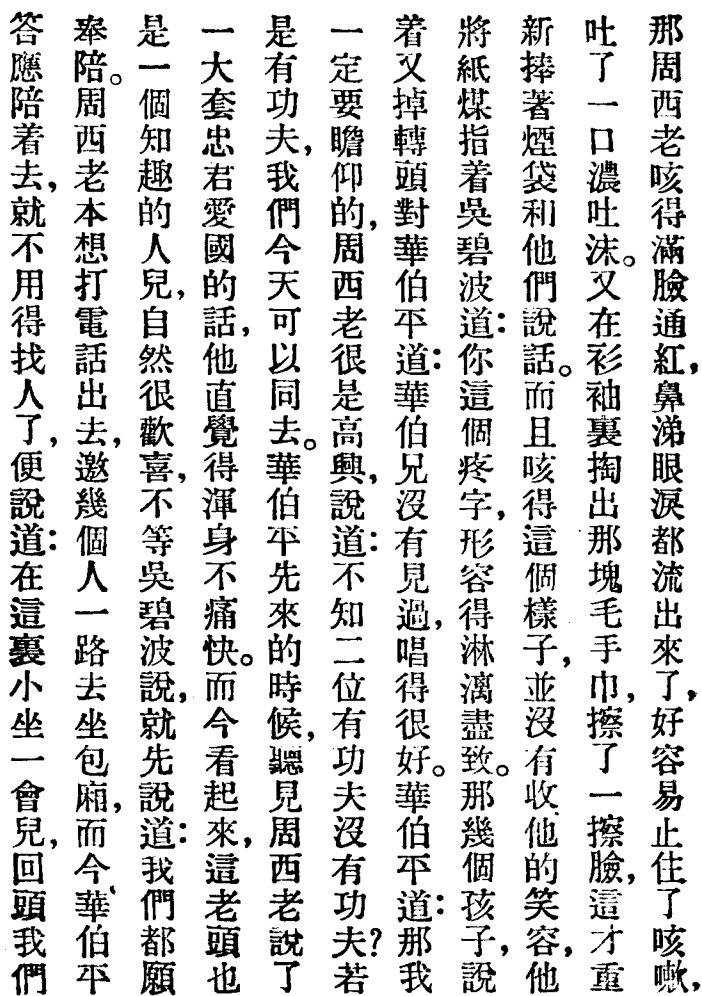 那周西老咳得滿臉通紅,鼻涕眼淚都流出來了,好容易止住了咳嗽,
吐了一口濃吐沫。又在衫袖裏掏出那塊毛手巾,擦了一擦臉,這才重
新捧著煙袋和他們說話。而且咳得這個樣子,並沒有收他的笑容,他
將紙煤指着吳碧波道:你這個疼字,形容得淋漓盡致。那幾個孩子,說
着又掉轉頭對華伯平道:華伯兄沒有見過,唱得很好。華伯平道:那我
一定要瞻仰的,周西老很是高興,說道:不知二位有功夫沒有功夫?若
是有功夫,我們今天可以同去。華伯平先來的時候,聽見周西老說了
一大套忠君愛國的話,他直覺得渾身不痛快。而今看起來,這老頭也
是一個知趣的人兒,自然很歡喜,不等吳碧波說,就先說道:我們都願
奉陪。周西老本想打電話出去,邀幾個人一路去坐包廂,而今華伯平
答應陪着去,就不用得找人了,便說道:在這裏小坐一會兒,回頭我們